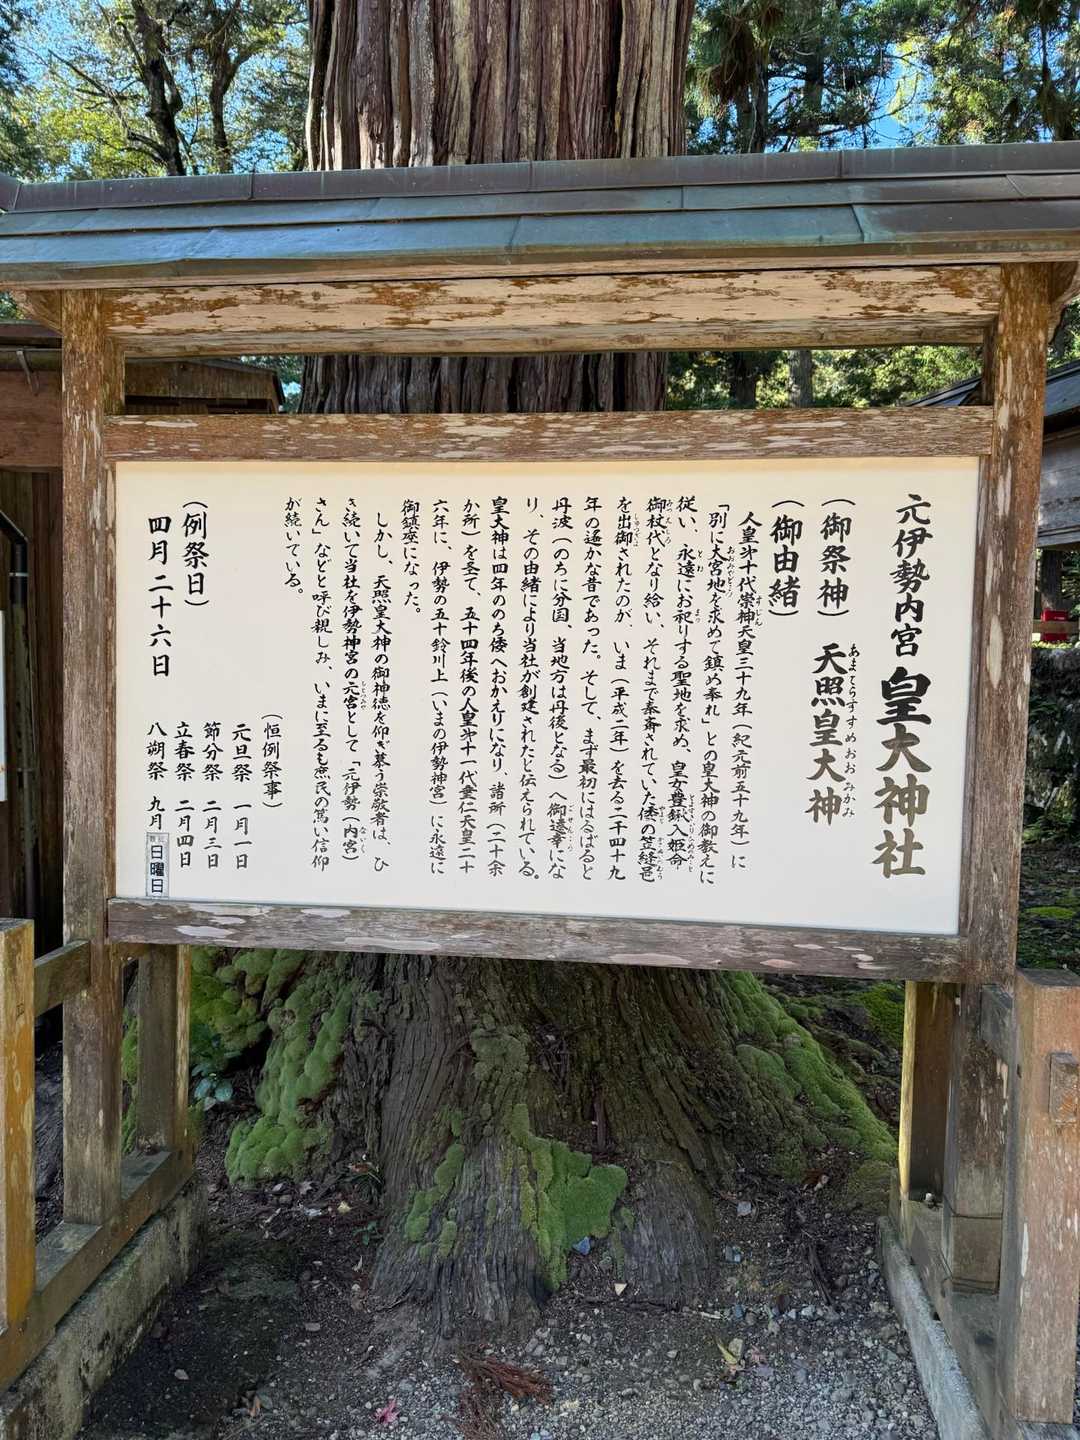 元伊勢内宮 皇大神社
(御祭神) 天照皇大神
あまてらすすめおおみかみ
(御由緒)
人皇第十代崇神天皇三十九年(紀元前五十九年)に
「別に大宮地を求めて鎮め奉れ」との皇大神の御教えに
従い、永遠にお祀りする聖地を求め、皇女豊鍬入姫命
御杖代となり給い、それまで奉斎されていた倭の笠縫邑
を出御されたのが、いま(平成二年)を去る二千四十九
年の遥かな昔であった。そして、まず最初にはるばると
丹波(のちに分国、当地方は丹後となる)へ御遷幸にな
り、その由緒により当社が創建されたと伝えられている。
皇大神は四年ののち倭へおかえりになり、諸所(二十余
か所)を巠て、五十四年後の人皇第十一代垂仁天皇二十
六年に、伊勢の五十鈴川上(いまの伊勢神宮)に永遠に
御鎮座になった。
しかし、天照皇大神の御神徳を仰ぎ慕う崇敬者は、ひ
き続いて当社を伊勢神宮の元宮として「元伊勢(内宮)
さん」などと呼び親しみ、いまに至るも庶民の篤い信仰
が続いている。
(恒例祭事)
元旦祭 一月一日
節分祭 二月三日
立春祭 二月四日
八朔祭 九月 日曜日
(例祭日)
四月二十六日